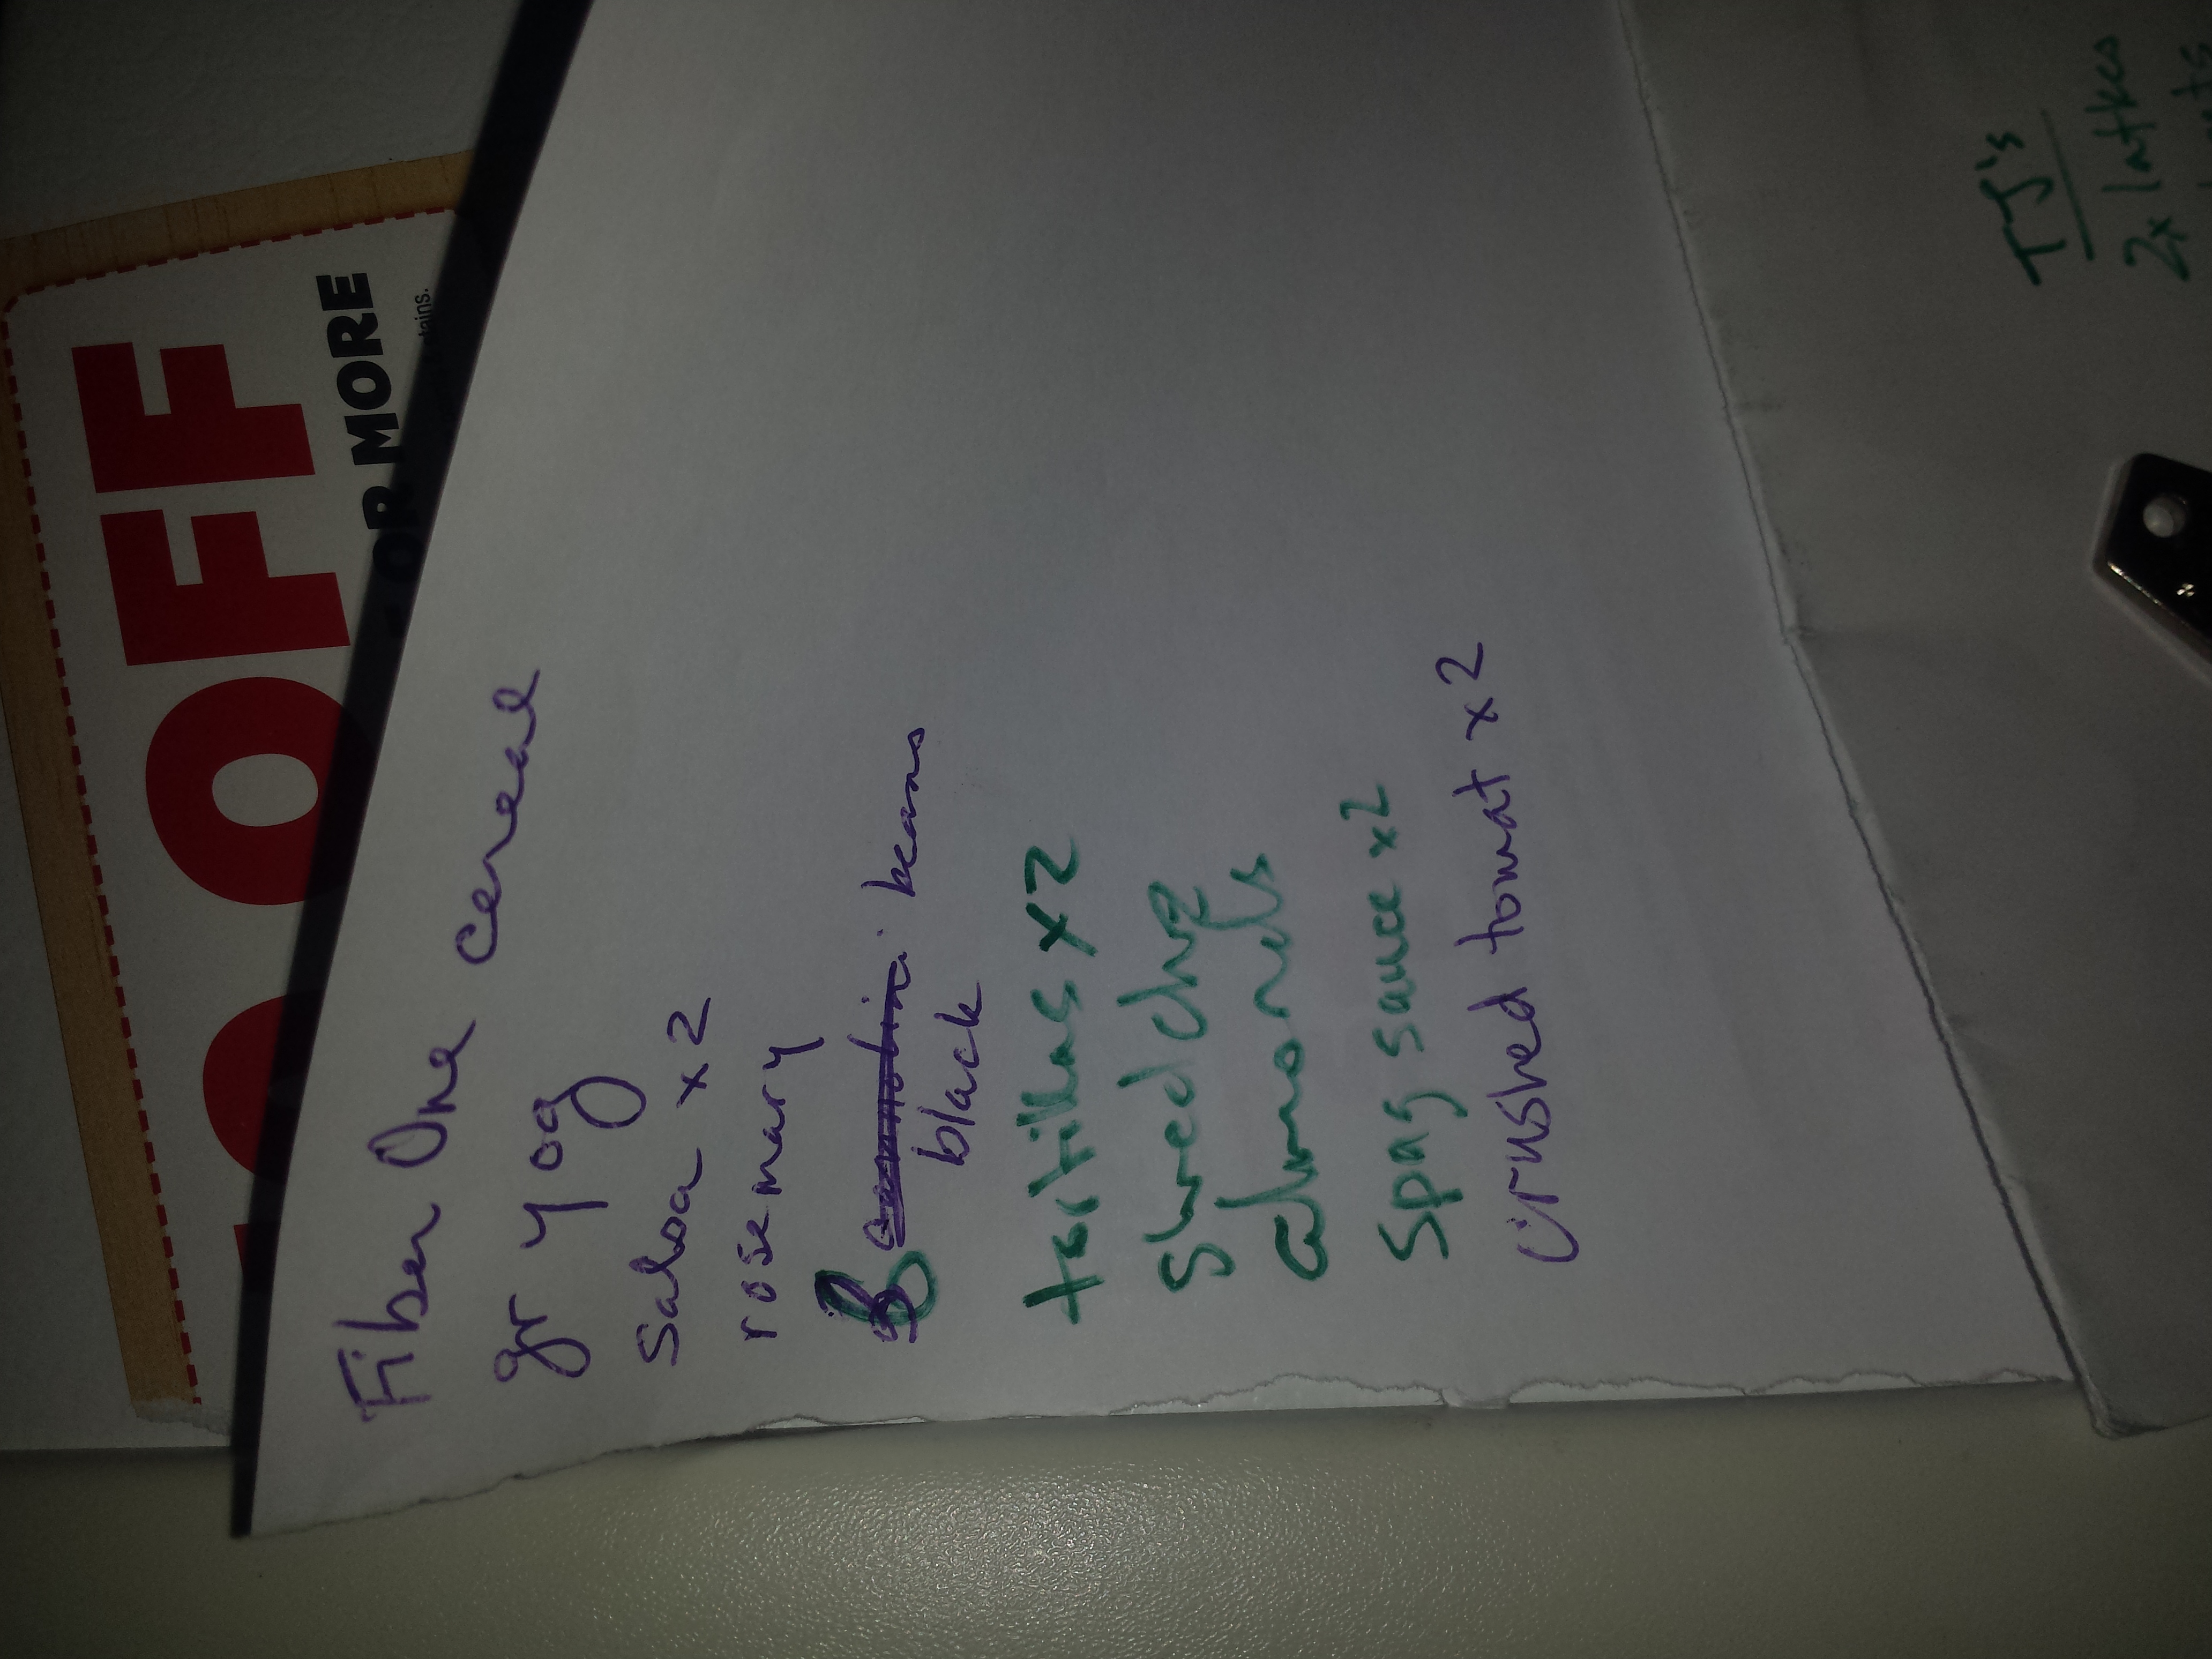 OFF
OR MORE
Fiber One cereal
gr yog
Salsa x2
rosemary
beans
black
tortillas x2
Shred chz
almonds
Spag sauce x2
crushed tomat x2
TJ's
2x latkes